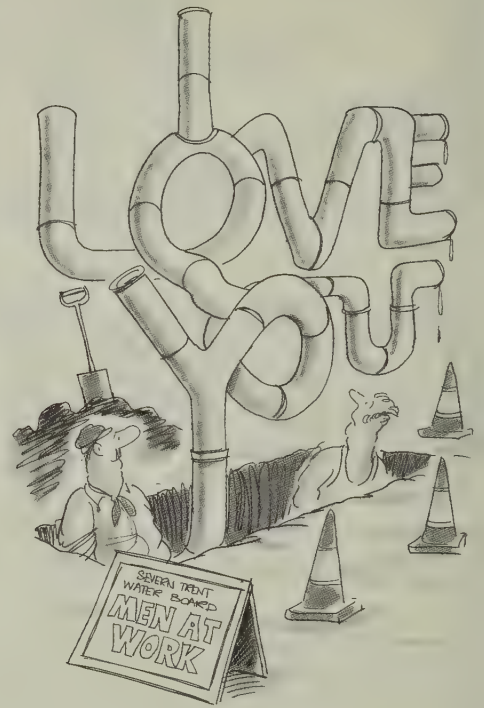 I
LOVE
YOU
SEVERN TRENT
WATER BOARD
MEN AT
WORK